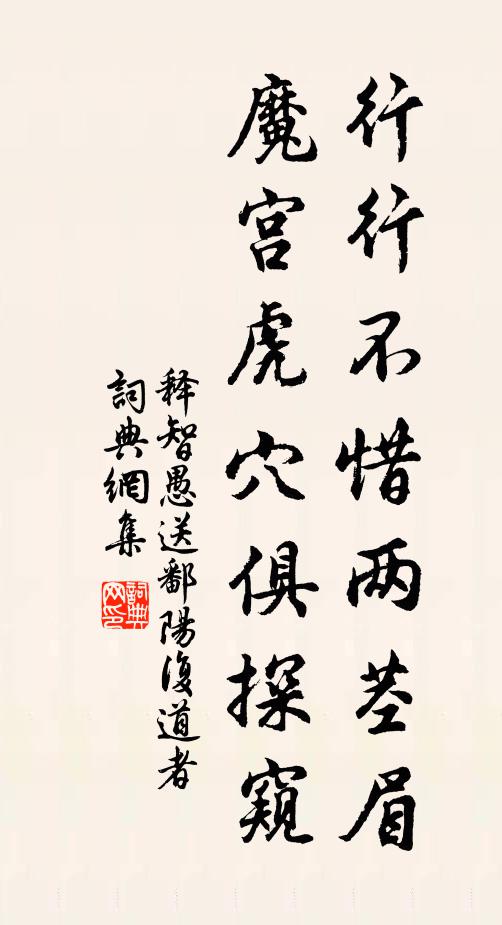 行行不惜两茎眉
魔宫虎穴俱探窥
释智愚送鄱陽復道者
詞典網集
詞典网印